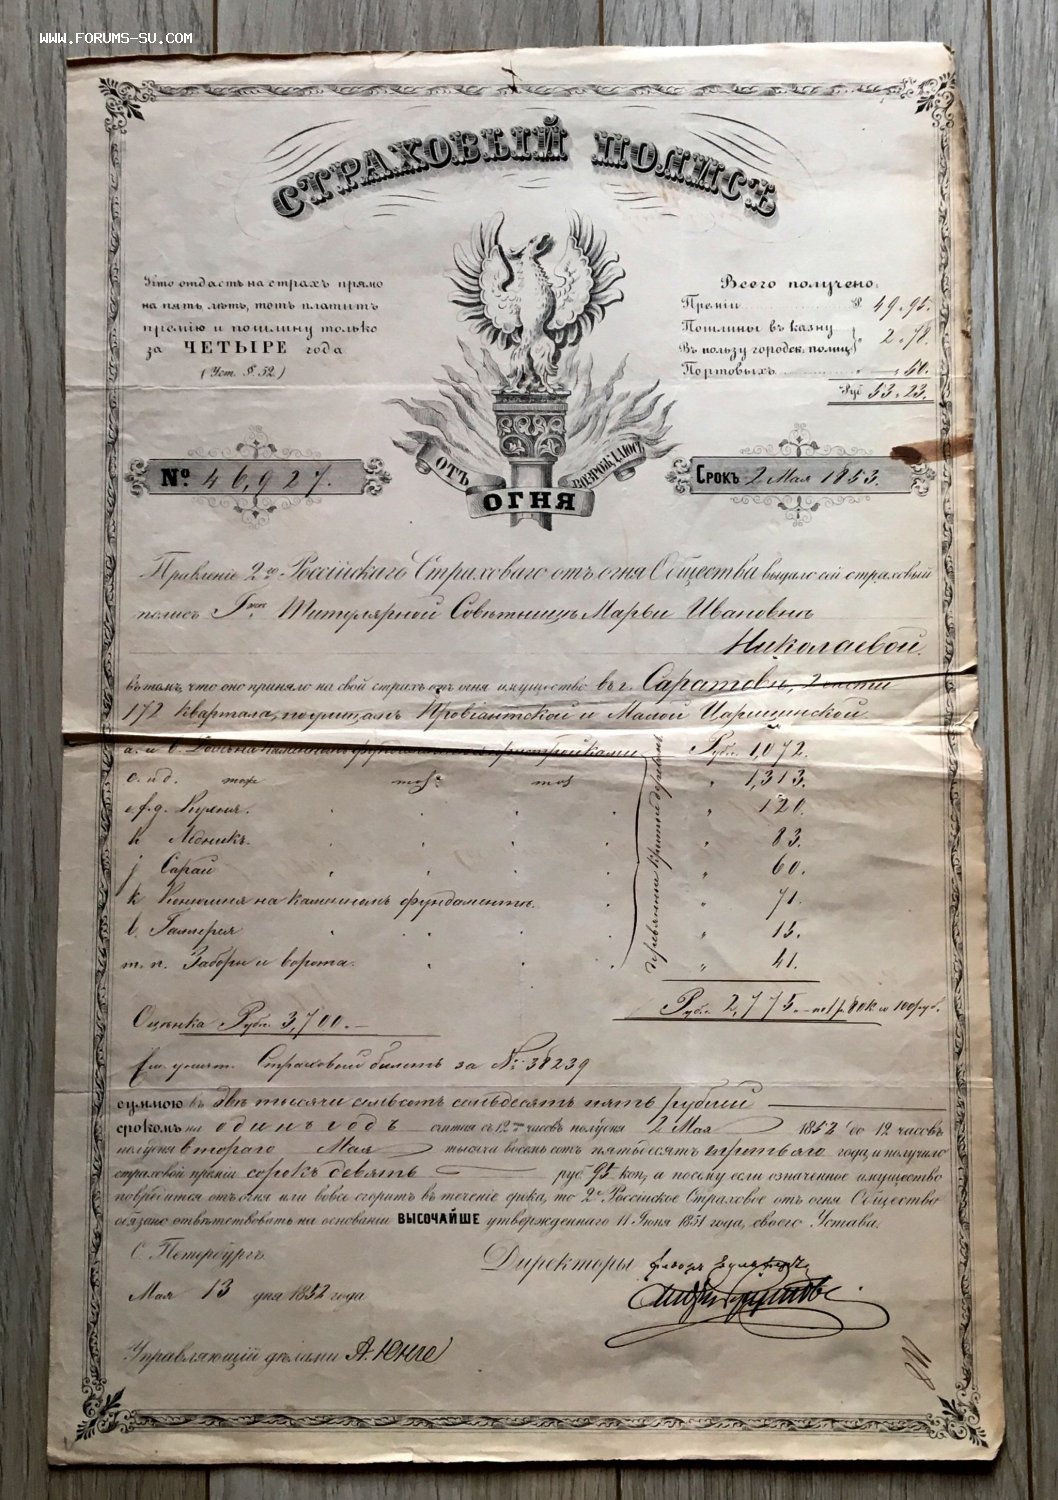 WWW.FORUMS-SU.COM
СТРАХОВЫЙ ПОЛИСЪ
Кто отдастъ на страхъ прямо
на пять лѣтъ, тотъ платитъ
премію и пошлину только
за ЧЕТЫРЕ года
(Уст. §. 52.)
Всего получено:
Преміи 49. 95.
Пошлины въ казну
Въ пользу городск. полиц. 2. 78.
Портовыхъ „ 50.
Руб 53. 23.
ОТЪ ОГНЯ ВОЗРОЖДАЮСЬ
№ 46,927.
СРОКЪ 2 Мая 1853.
Правленіе 2го Россійскаго Страховаго отъ огня Общества выдало сей страховый
полисъ Гжѣ Титулярной Совѣтницѣ Марьи Ивановнѣ
Николаевой.
въ томъ, что оно приняло на свой страхъ отъ огня имущество въ г. Саратовѣ, 2 части
172 квартала, по улицамъ Провіантской и Малой Царицинской
а. и b. Руб. 1,072.
c. и d. тоже тожъ тож „ 1,313.
e. f. g. Кухня. „ 120.
h Ледникъ. „ 83.
j Сарай „ 60.
k Конюшня на каменномъ фундаментѣ. „ 71.
l. Галлерея „ 15.
m. n. Заборы и ворота. „ 41.
деревянныя крытые деревомъ
Руб. 2,775. 1 р. 80 к со 100 руб.
Оцѣнка Рубл. 3,700.
Страховой билетъ за № 38239
суммою въ двѣ тысячи семьсотъ семьдесятъ пять рублей
срокомъ на одинъ годъ считая съ 12ти часовъ полудня 2 Мая 1852 до 12 часовъ
полудня втораго Мая тысяча восемь сотъ пятьдесятъ третьяго года, и получило
страховой преміи сорокъ девять руб. 95 коп., а посему если означенное имущество
повредится отъ огня или вовсе сгоритъ въ теченіе срока, то 2е Россійское Страховое отъ огня Общество
обязано отвѣтствовать на основаніи ВЫСОЧАЙШЕ утвержденнаго 11 Іюня 1851 года, своего Устава.
С. Петербургъ.
Директоры
Мая 13 дня 1852 года
Управляющій дѣлами А. Юнге